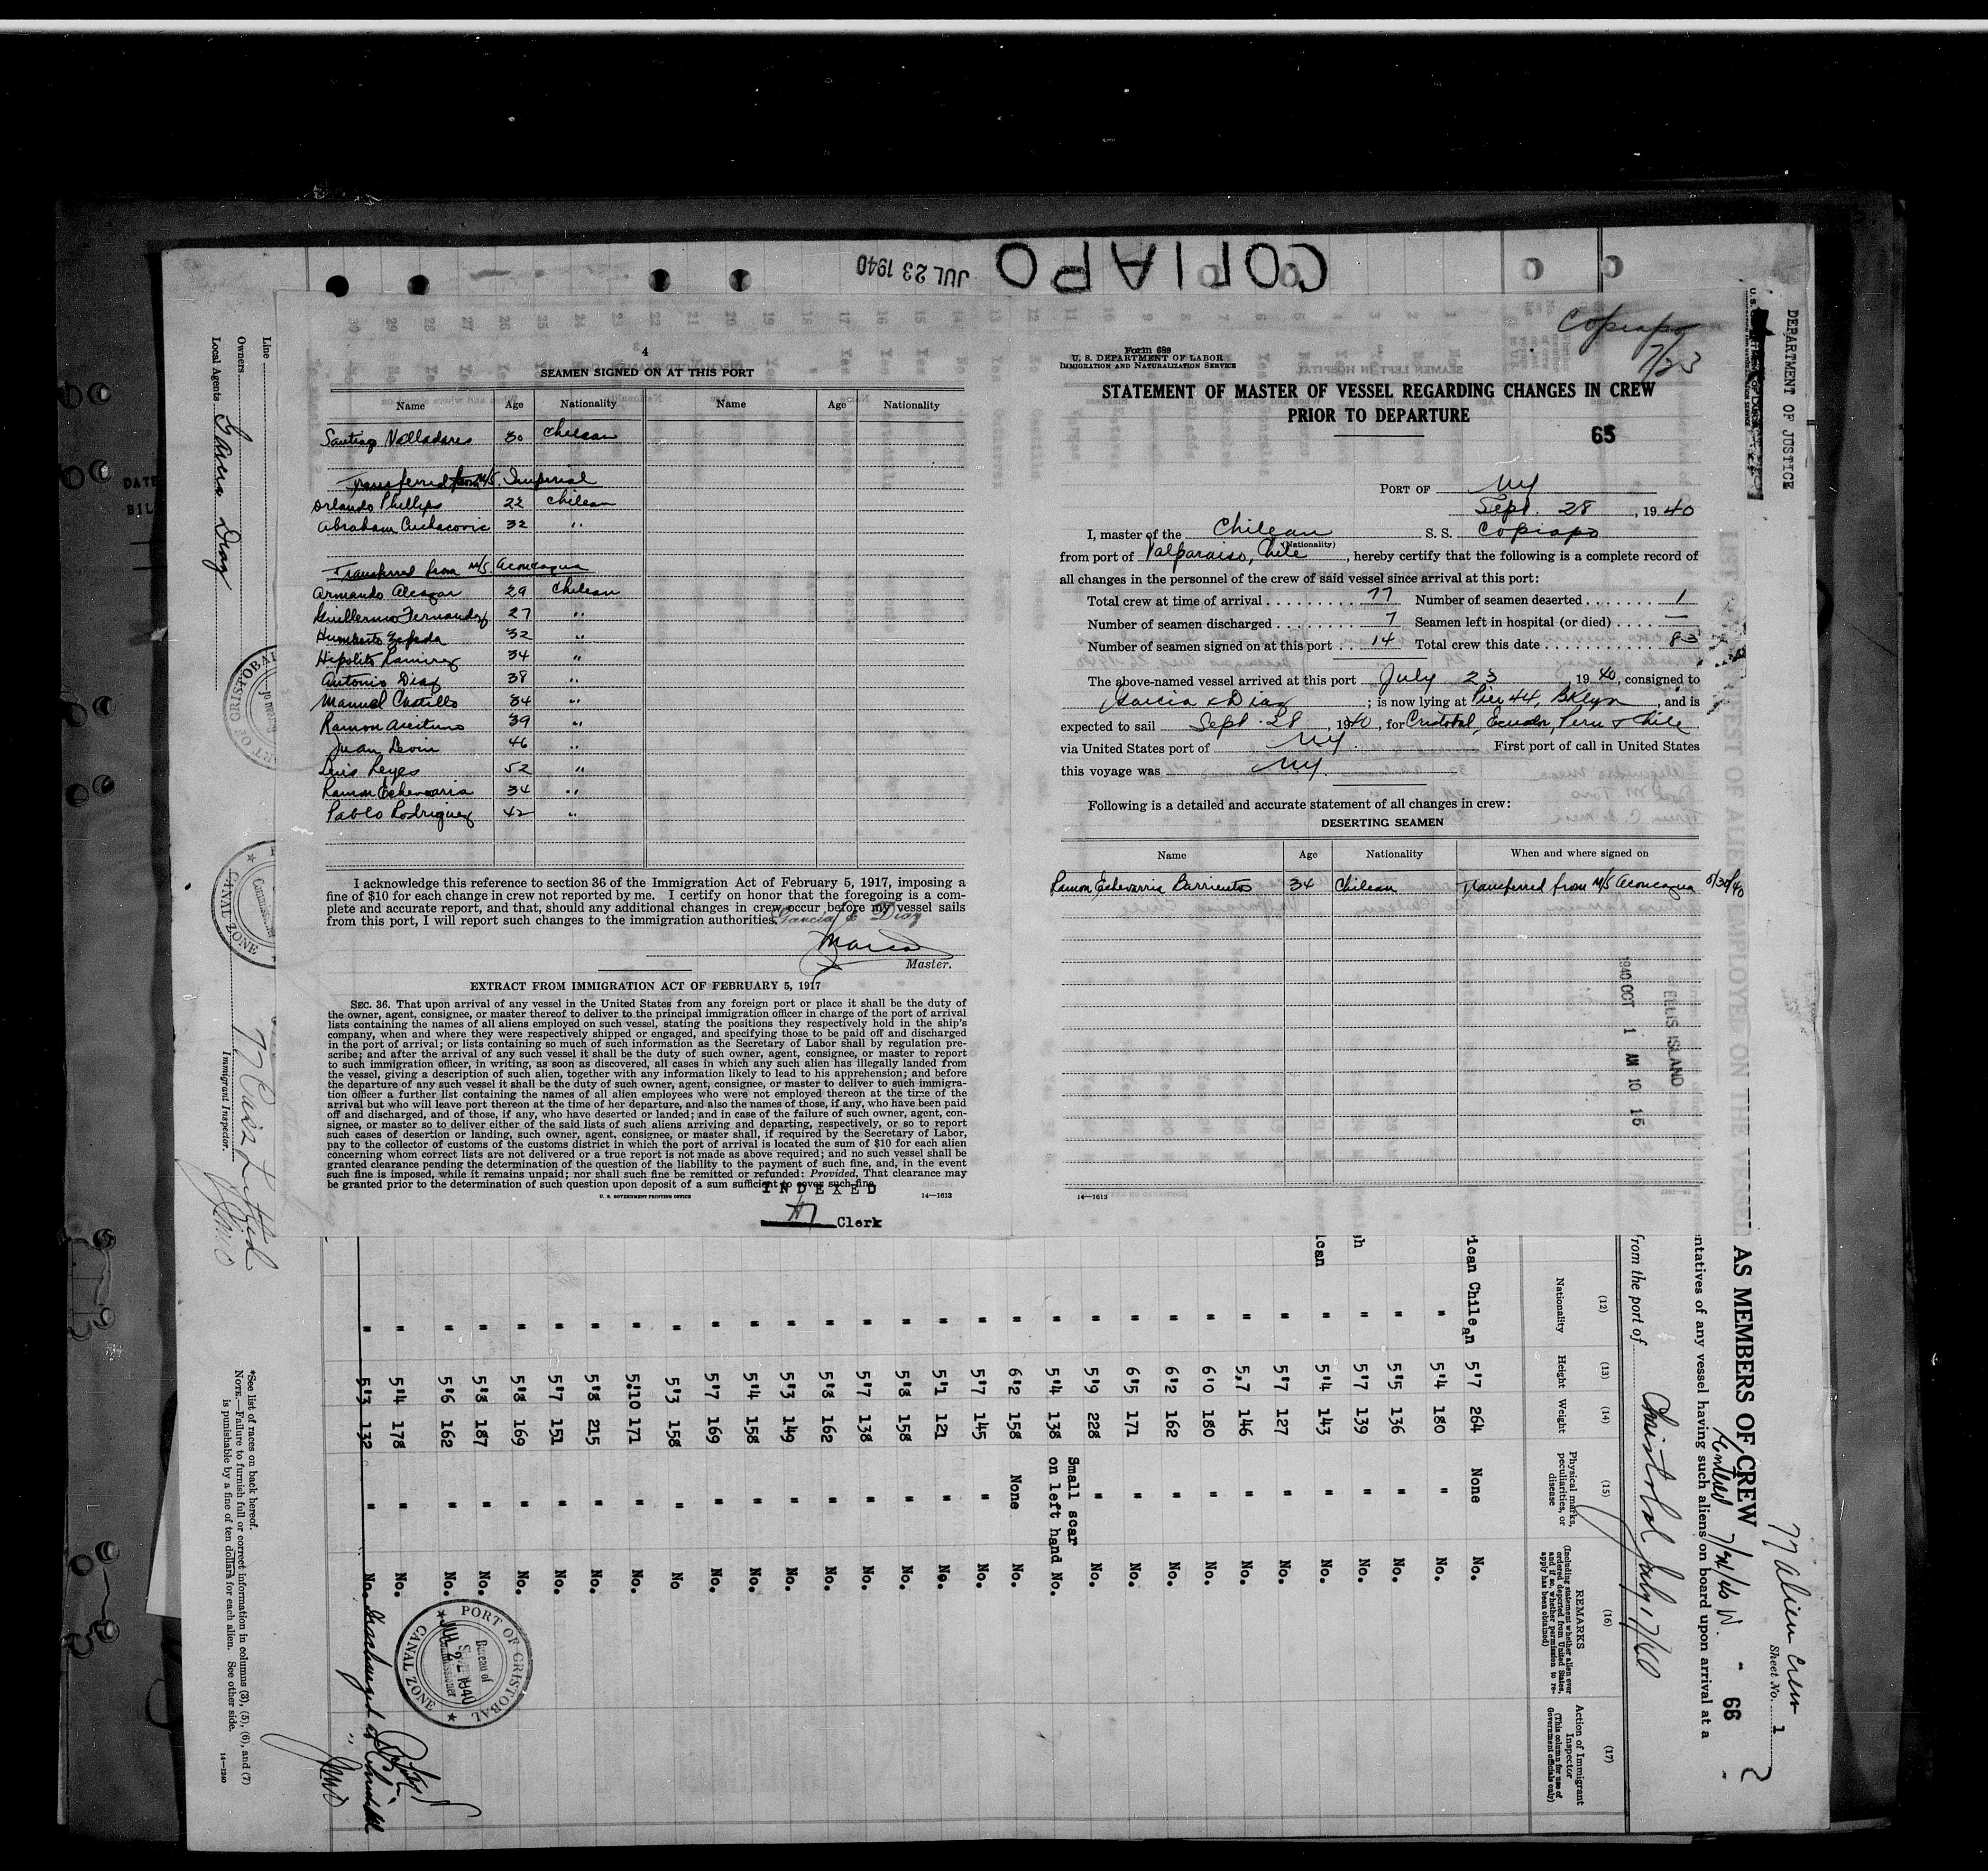 COPIAPO
JUL 23 1940
4
SEAMEN SIGNED ON AT THIS PORT
Name Age Nationality Name Age Nationality
Santiago Valladares 30 Chilean
Transferred from M/S. Imperial
Orlando Phillips 22 Chilean
Abraham Cuchacovic 32 "
Transferred from M/S. Aconcagua
Armando Alcazar 29 Chilean
Guillermo Fernandez 27 "
Humberto Zepeda 32 "
Hipolito Ramirez 34 "
Antonio Diaz 38 "
Manuel Castillo 34 "
Ramon Aceituno 39 "
Juan 46 "
Luis Reyes 52 "
Ramon Echevarria 34 "
Pablo Rodriguez 42 "
I acknowledge this reference to section 36 of the Immigration Act of February 5, 1917, imposing a
fine of $10 for each change in crew not reported by me. I certify on honor that the foregoing is a com-
plete and accurate report, and that, should any additional changes in crew occur before my vessel sails
from this port, I will report such changes to the immigration authorities.
Garcia & Diaz
Master.
EXTRACT FROM IMMIGRATION ACT OF FEBRUARY 5, 1917
SEC. 36. That upon arrival of any vessel in the United States from any foreign port or place it shall be the duty of
the owner, agent, consignee, or master thereof to deliver to the principal immigration officer in charge of the port of arrival
lists containing the names of all aliens employed on such vessel, stating the positions they respectively hold in the ship's
company, when and where they were respectively shipped or engaged, and specifying those to be paid off and discharged
in the port of arrival; or lists containing so much of such information as the Secretary of Labor shall by regulation pre-
scribe; and after the arrival of any such vessel it shall be the duty of such owner, agent, consignee, or master to report
to such immigration officer, in writing, as soon as discovered, all cases in which any such alien has illegally landed from
the vessel, giving a description of such alien, together with any information likely to lead to his apprehension; and before
the departure of any such vessel it shall be the duty of such owner, agent, consignee, or master to deliver to such immigra-
tion officer a further list containing the names of all alien employees who were not employed thereon at the time of the
arrival but who will leave port thereon at the time of her departure, and also the names of those, if any, who have been paid
off and discharged, and of those, if any, who have deserted or landed; and in case of the failure of such owner, agent, con-
signee, or master so to deliver either of the said lists of such aliens arriving and departing, respectively, or so to report
such cases of desertion or landing, such owner, agent, consignee, or master shall, if required by the Secretary of Labor,
pay to the collector of customs of the customs district in which the port of arrival is located the sum of $10 for each alien
concerning whom correct lists are not delivered or a true report is not made as above required; and no such vessel shall be
granted clearance pending the determination of the question of the liability to the payment of such fine, and, in the event
such fine is imposed, while it remains unpaid; nor shall such fine be remitted or refunded: Provided, That clearance may
be granted prior to the determination of such question upon deposit of a sum sufficient to cover such fine.
U. S. GOVERNMENT PRINTING OFFICE 14—1613
INDEXED
Clerk
Copiapo
7/23
Form 689
U. S. DEPARTMENT OF LABOR
IMMIGRATION AND NATURALIZATION SERVICE
STATEMENT OF MASTER OF VESSEL REGARDING CHANGES IN CREW
PRIOR TO DEPARTURE
65
PORT OF NY
Sept. 28, 1940
I, master of the Chilean S. S. Copiapo
(Nationality)
from port of Valparaiso, Chile, hereby certify that the following is a complete record of
all changes in the personnel of the crew of said vessel since arrival at this port:
Total crew at time of arrival 77 Number of seamen deserted 1
Number of seamen discharged 7 Seamen left in hospital (or died) —
Number of seamen signed on at this port 14 Total crew this date 83
The above-named vessel arrived at this port July 23 1940, consigned to
Garcia & Diaz; is now lying at Pier 44, Bklyn, and is
expected to sail Sept. 28, 1940, for Cristobal, Ecuador, Peru & Chile
via United States port of NY. First port of call in United States
this voyage was NY.
Following is a detailed and accurate statement of all changes in crew:
DESERTING SEAMEN
Name Age Nationality When and where signed on
Ramon Echevarria Barrientos 34 Chilean Transferred from M/S Aconcagua 8/30/40
1940 OCT 1 AM 10 15
ELLIS ISLAND
14—1613
DEPARTMENT OF JUSTICE
AS MEMBERS OF CREW
77 Alien Crew
Sheet No. 1
66
ntatives of any vessel having such aliens on board upon arrival at a
from the port of Cristobal July 17/40
(12) (13) (14) (15) (16) (17)
Nationality
Height
Weight
Physical marks, peculiarities, or disease
REMARKS
(Including statement whether alien ever ordered deported from United States, and if so, whether permission to re-apply has been obtained)
Action of Immigrant Inspector
(This column for use of Government officials only)
ican Chilean 5'7 264 None No.
" 5'4 180 " No.
" 5'5 136 " No.
" 5'7 139 " No.
" 5'4 143 " No.
" 5'7 127 " No.
" 5,7 146 " No.
" 6'0 180 " No.
" 6'2 162 " No.
" 6'5 171 " No.
" 5'9 228 " No.
" 5'4 138 Small scar on left hand No.
" 6'2 158 None No.
" 5'7 145 " No.
" 5'1 121 " No.
" 5'8 158 " No.
" 5'7 138 " No.
" 5'8 162 " No.
" 5'3 149 " No.
" 5'4 158 " No.
" 5'7 169 " No.
" 5'3 158 " No
" 5'10 171 " No.
" 5'8 215 " No.
" 5'7 151 " No.
" 5'8 169 " No.
" 5'8 187 " No.
" 5'6 162 " No.
" 5'4 178 " No.
" 5'3 132 " No.
PORT OF CRISTOBAL
Bureau of
JUL 1940
Commissioner
CANAL ZONE
Line
Owners
Local Agents Garcia Diaz
Immigrant Inspector.
*See list of races on back hereof.
NOTE.—Failure to furnish full or correct information in columns (3), (5), (6), and (7)
is punishable by a fine of ten dollars for each alien. See other side.
14—1240